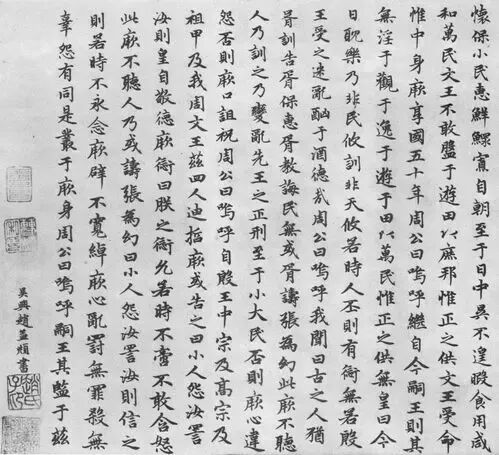 懷保小民惠鮮鰥寡自朝至于日中昃不遑暇食用咸
和萬民文王不敢盤于遊田以庶邦惟正之供文王受命
惟中身厥享國五十年周公曰嗚呼繼自今嗣王則其
無淫于觀于逸于遊于田以萬民惟正之供無皇曰今
日耽樂乃非民攸訓非天攸若時人丕則有愆無若殷
王受之迷亂酗于酒德哉周公曰嗚呼我聞曰古之人猶
胥訓告胥保惠胥教誨民無或胥譸張為幻此厥不聽
人乃訓之乃變亂先王之正刑至于小大民否則厥心違
怨否則厥口詛祝周公曰嗚呼自殷王中宗及高宗及
祖甲及我周文王茲四人迪哲厥或告之曰小人怨汝詈
汝則皇自敬德厥愆曰朕之愆允若時不啻不敢含怒
此厥不聽人乃或譸張為幻曰小人怨汝詈汝則信之
則若時不永念厥辟不寬綽厥心亂罰無罪殺無
辜怨有同是叢于厥身周公曰嗚呼嗣王其監于茲
吳興趙孟頫書